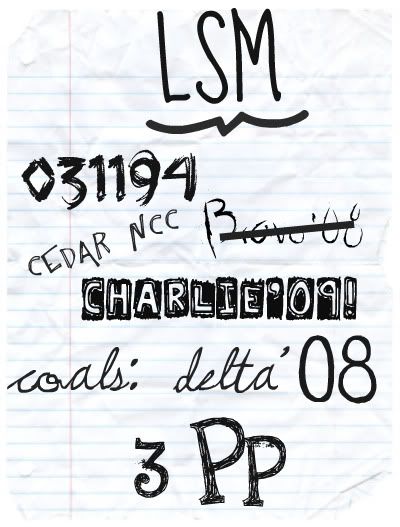 LSM
031194
CEDAR NCC
Bravo'08
CHARLIE'09!
coals: delta'08
3 Pp